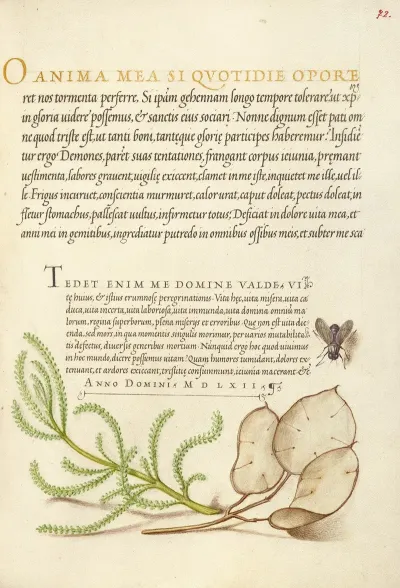 72.
O ANIMA MEA SI QVOTIDIE OPORE
ret nos tormenta perferre, Si ipãm gehennam longo tempore tolerare, ut xp̃m
in gloria uidere possemus, & sanctis eius sociari. Nonne dignum esset pati om
ne quod triste est, ut tanti boni, tantęque glorię participes haberemur? Insidiẽ
tur ergo Demones, parẽt suas tentationes, frangant corpus ieiunia, pręmant
uestimenta, labores grauent, uigilię exiccent, clamet in me iste, inquietet me ille, uel il
le. Frigus incuruet, conscientia murmuret, calor urat, caput doleat, pectus doleat, in
fletur stomachus, pallescat uultus, infirmetur totus, Deficiat in dolore uita mea, et
anni mei in gemitibus, ingrediatur putredo in omnibus ossibus meis, et subter me sca
TEDET ENIM ME DOMINE VALDE VI
tę huius, & istius erumnosę peregrinationis. Vita hęc, uita misera, uita ca
duca, uita incerta, uita laboriosa, uita immunda, uita domina omniũ ma
lorum, regina superborum, plena miserijs et erroribus. Quę non est uita dic
enda, sed mors, in qua momentis singulis morimur, per uarios mutabilita
tis defectus, diuersis generibus mortium. Nunquid ergo hoc quod uiuimus
in hoc mundo, dicere possumus uitam? Quam humores tumidant, dolores ex
tenuant, et ardores exiccant, tristitię consummunt, ieiunia macerant &
ANNO DOMINI M D LXII